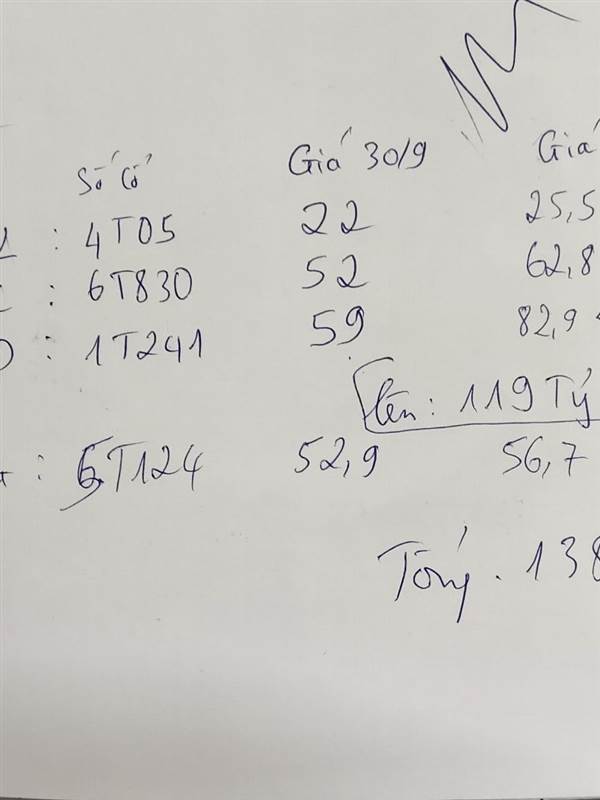 Số Cổ Giá 30/9 Giá
: 4T05 22 25,5
: 6T830 52 62,8
: 1T241 59 82,9
lên: 119 Tỷ
: T124 52,9 56,7
Tổng. 138